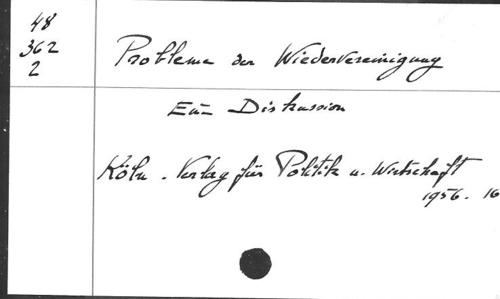 48
362
2
Probleme der Wiedervereinigung
Eine Diskussion
Köln. Verlag für Politik u. Wirtschaft
1956. 16